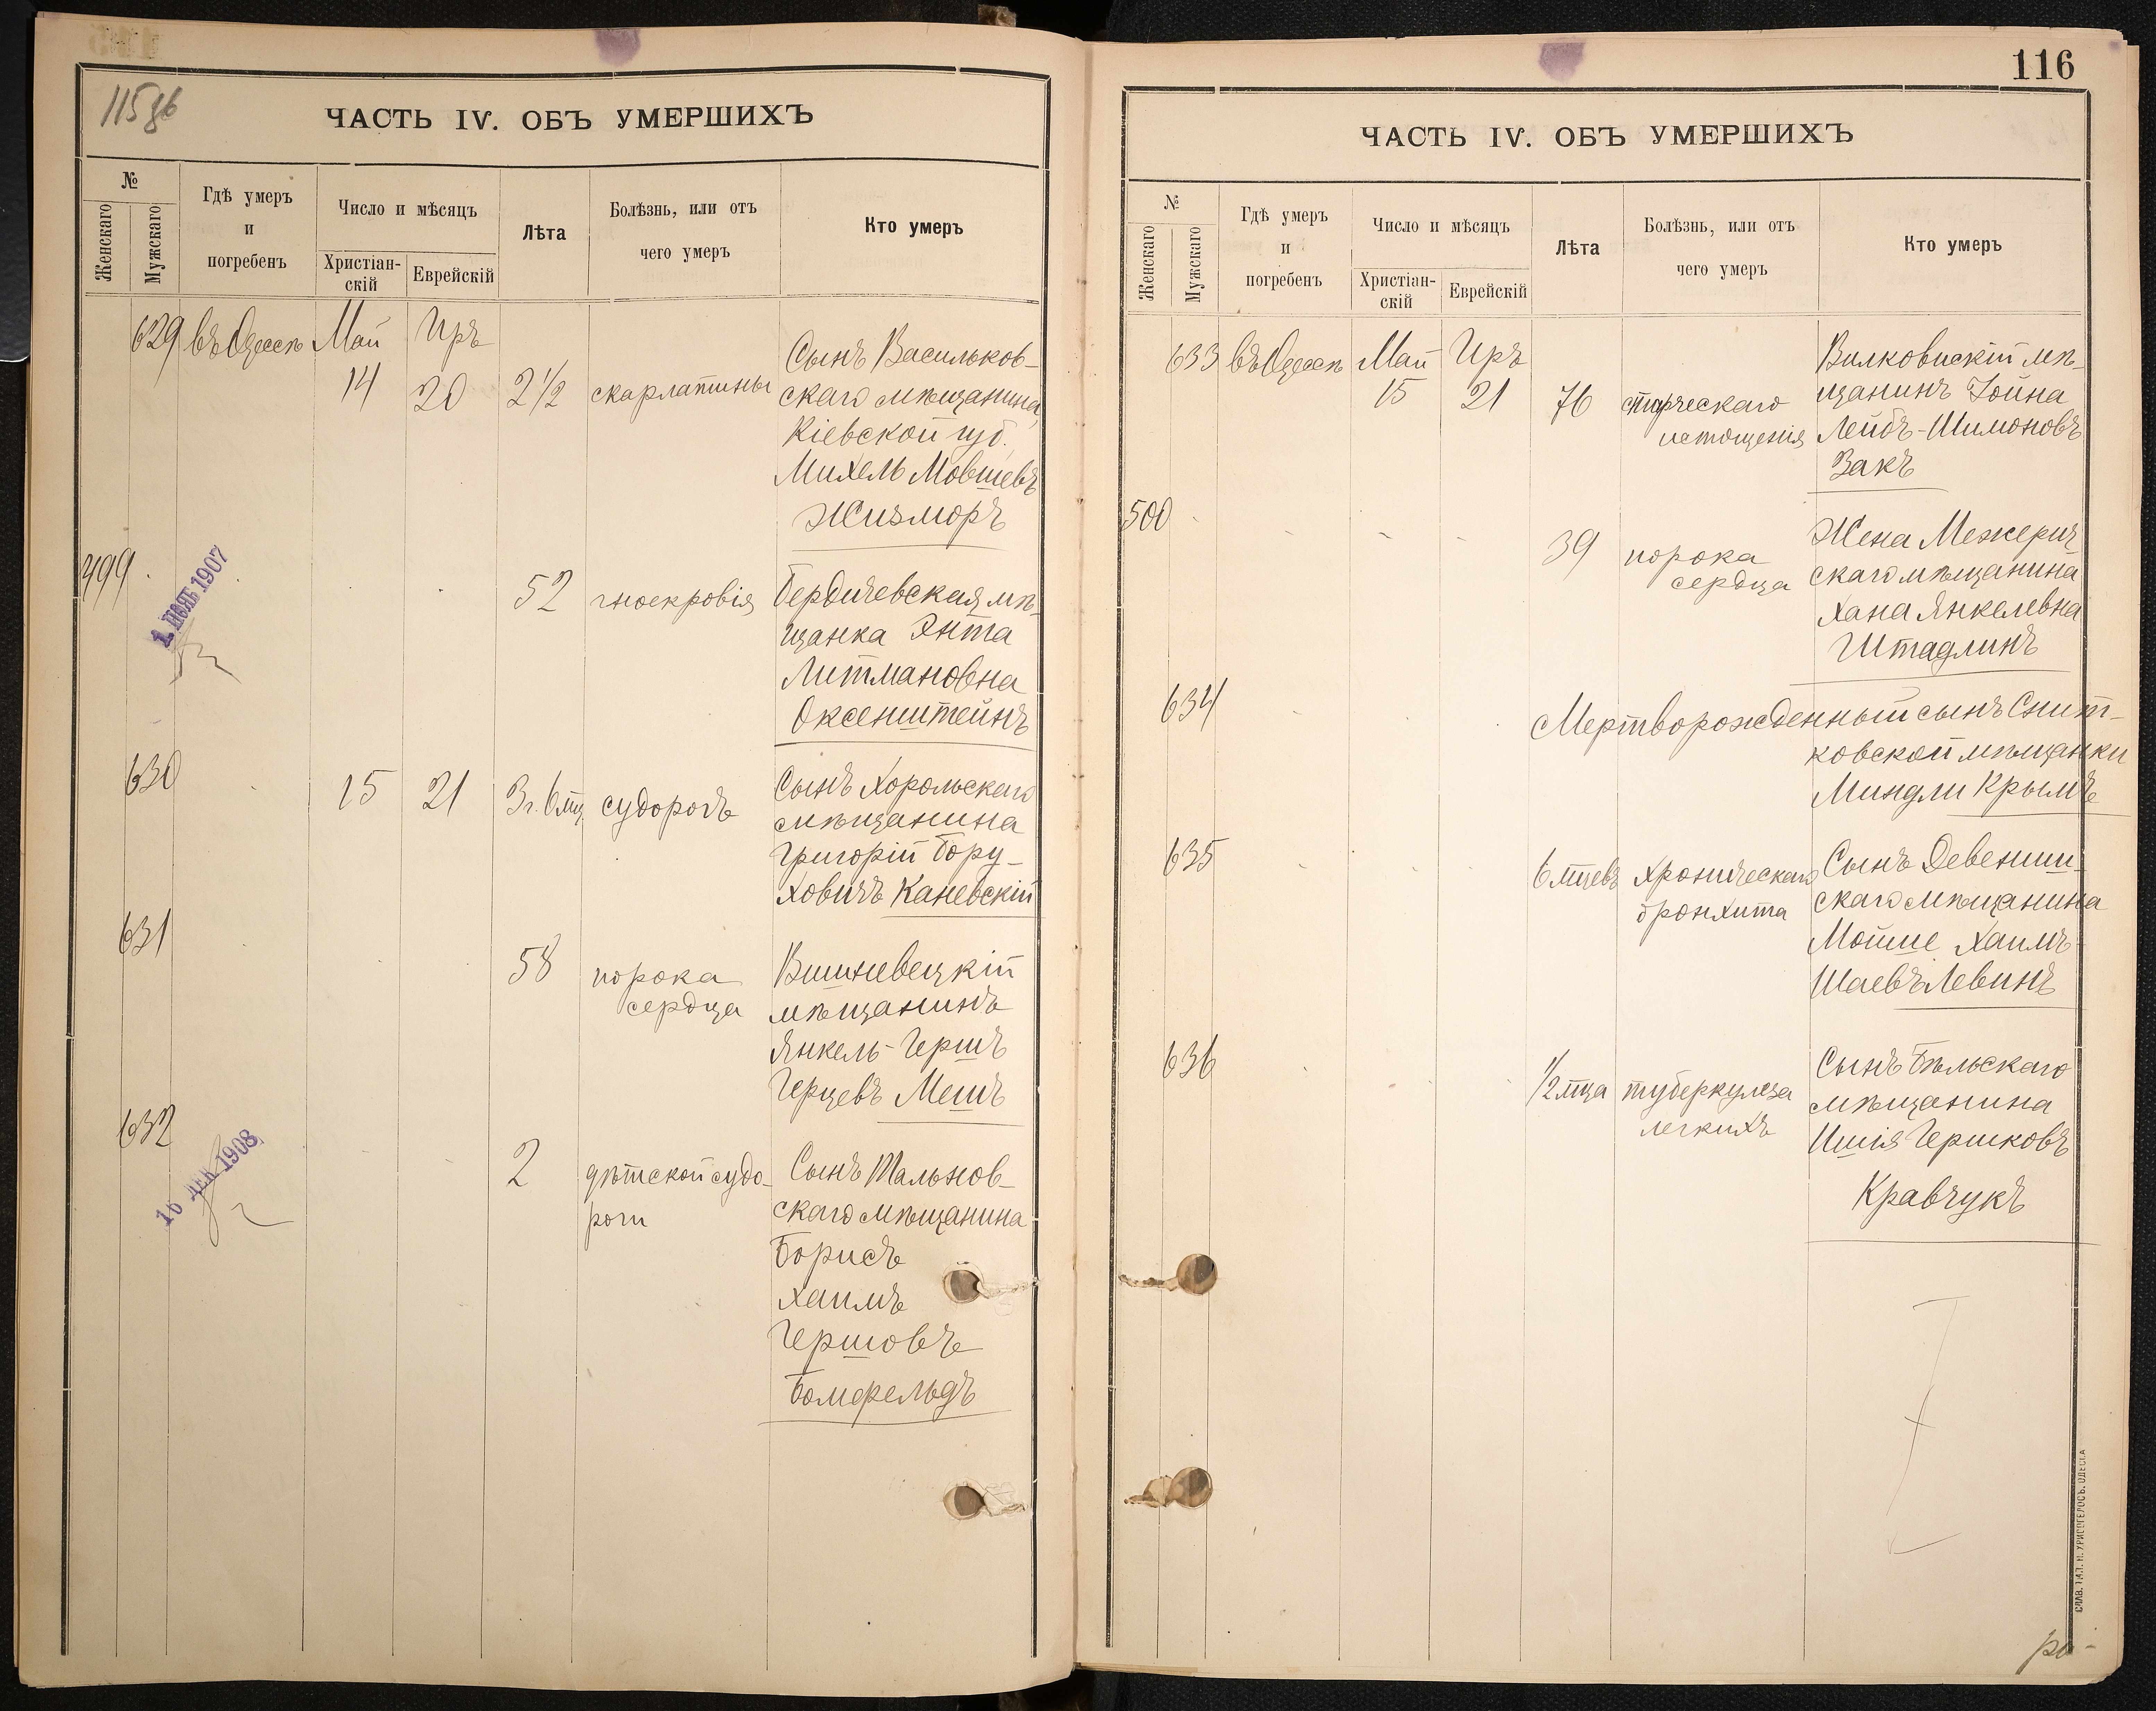 115 об
ЧАСТЬ IV. ОБЪ УМЕРШИХЪ
№
Женскаго
Мужскаго
Гдѣ умеръ
и
погребенъ
Число и мѣсяцъ
Христіан-
скій
Еврейскій
Лѣта
Болѣзнь, или отъ
чего умеръ
Кто умеръ
629 въ Одессѣ Май Иръ
14 20 2½ скарлатины
Сынъ Васильков-
скаго мѣщанина,
Кіевской губ.
Михель Мовшевъ
Жизморъ
499
1907
52 гноекровія
Бердичевская мѣ-
щанка Энта
Литмановна
Оксенштейнъ
630 15 21 3 г. 6 мц судорогъ
Сынъ Хорольскаго
мѣщанина
Григорій Бору-
ховичъ Каневскій
631 58 порока
сердца
Вишневецкій
мѣщанинъ
Янкель-Гершъ
Герцевъ Мешъ
632
16 ДЕК 1908
2 дѣтской судо-
роги
Сынъ Тальнов-
скаго мѣщанина
Борисъ
Хаимъ
Гершовъ
Бомфельдъ
116
ЧАСТЬ IV. ОБЪ УМЕРШИХЪ
№
Женскаго
Мужскаго
Гдѣ умеръ
и
погребенъ
Число и мѣсяцъ
Христіан-
скій
Еврейскій
Лѣта
Болѣзнь, или отъ
чего умеръ
Кто умеръ
633 въ Одессѣ Май Иръ
15 21 76 старческаго
истощенія
Вилковискій мѣ-
щанинъ Іойна
Лейбъ-Шимоновъ
Закъ
500 39 порока
сердца
Жена Межерич-
скаго мѣщанина
Хана Янкелевна
Штадлинъ
634 Мертворожденный сынъ Снит-
ковской мѣщанки
Миндли Крымъ
635 6 мцевъ хроническаго
бронхита
Сынъ Девениш-
скаго мѣщанина
Мойше Хаимъ
Шаевъ Левинъ
636 1/2 мца туберкулеза
легкихъ
Сынъ Бѣльскаго
мѣщанина
Ишія Гершковъ
Кравчукъ
СЛАВ. ТИП. Н. ХРИСОГЕЛОСЪ. ОДЕССА